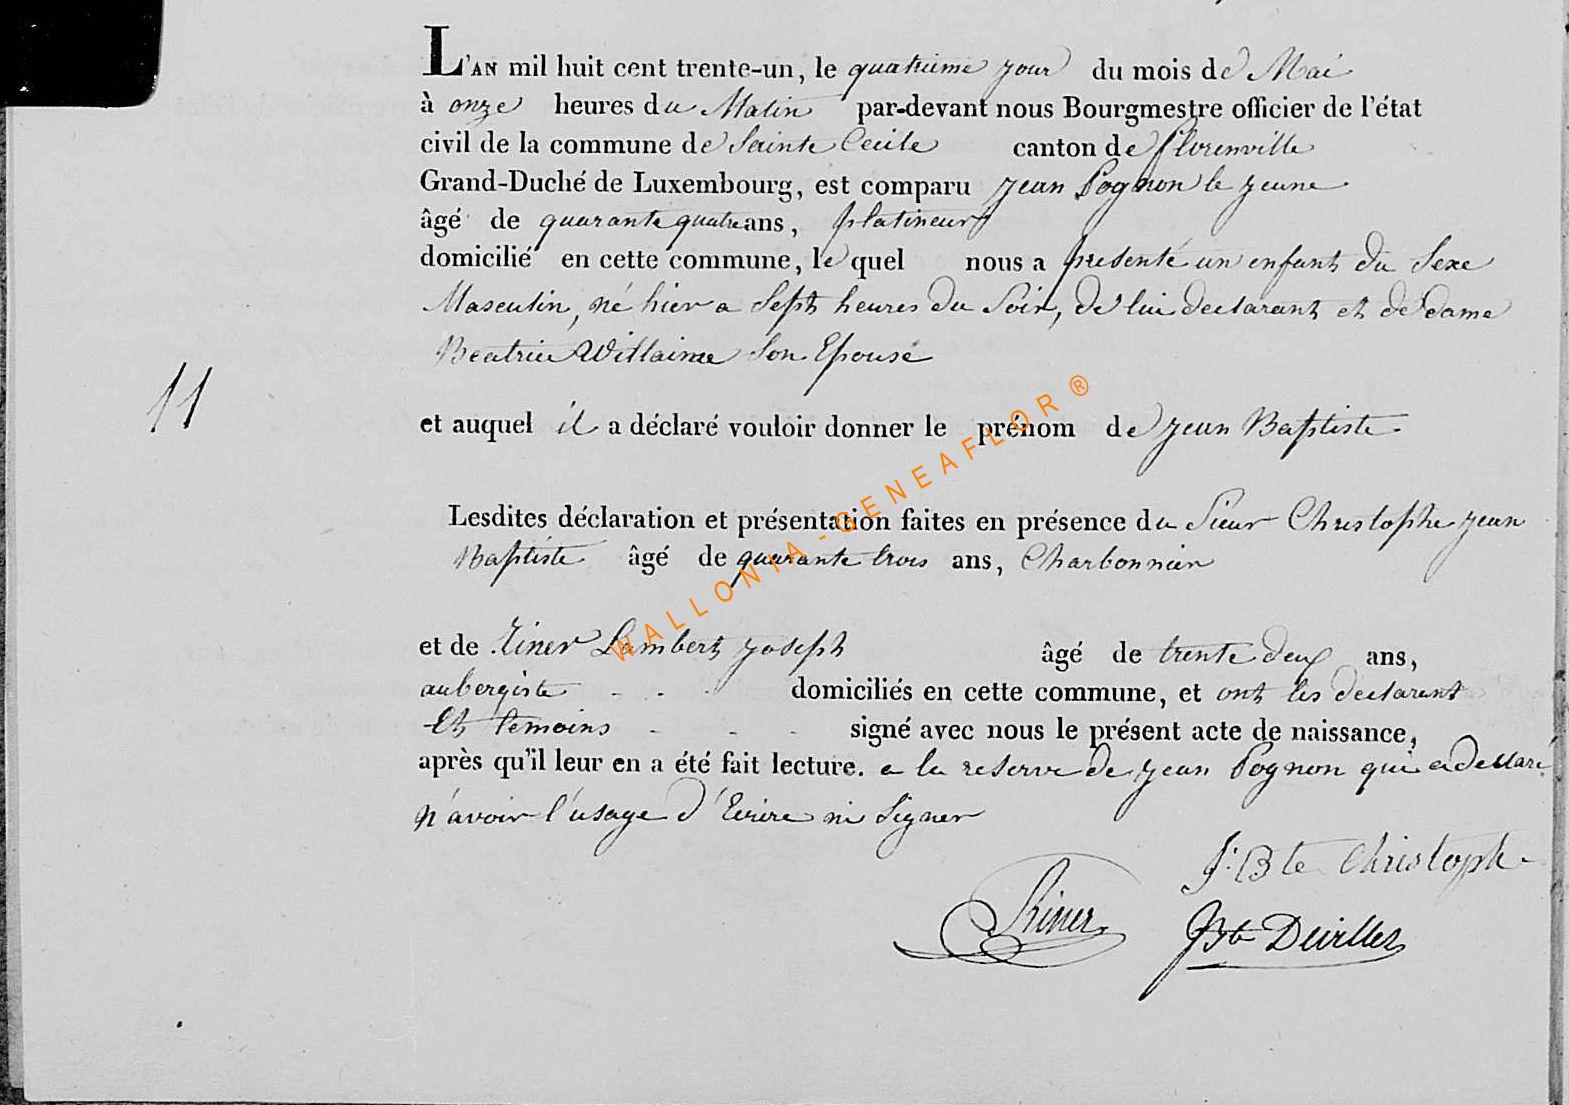 L'AN mil huit cent trente-un, le quatrieme jour du mois de Mai
à onze heures du Matin par-devant nous Bourgmestre officier de l'état
civil de la commune de Sainte Cecile canton de florenville
Grand-Duché de Luxembourg, est comparu Jean Pognon le jeune
âgé de quarante quatre ans, platineur
domicilié en cette commune, le quel nous a presenté un enfant du Sexe
Masculin, né hier a Sept heures du Soir, de lui declarant et de dame
Beatrice Willaime Son Epouse
11
et auquel il a déclaré vouloir donner le prénom de Jean Baptiste
Lesdites déclaration et présentation faites en présence du Sieur Christophe Jean
Baptiste âgé de quarante trois ans, Charbonnier
et de Riner Lambert Joseph âgé de trente deux ans,
aubergiste - - - domiciliés en cette commune, et ont les declarant
Et temoins - - - signé avec nous le présent acte de naissance,
après qu'il leur en a été fait lecture. a la reserve de Jean Pognon qui a declaré
n'avoir l'usage d'Ecrire ni Signer
J. Bte Christoph
Riner JBte Deville
WALLONIA - GENEAFLOR ®